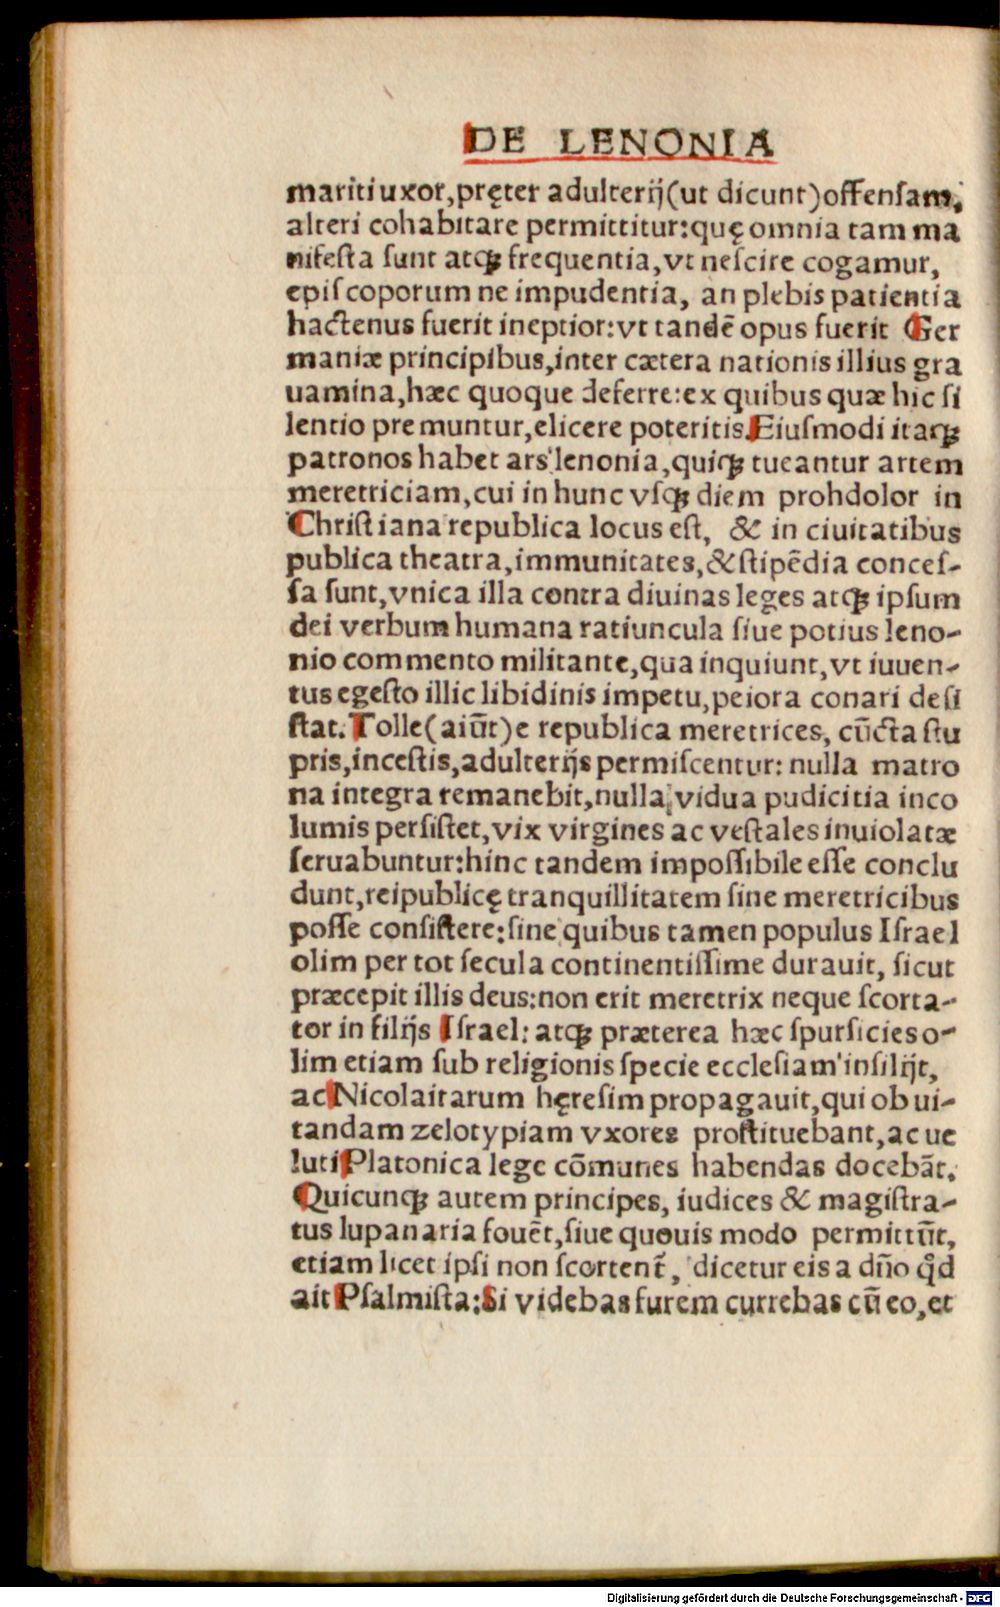 DE LENONIA
maritiuxor,pręter adulterij(ut dicunt)offenſam,
alteri cohabitare permittitur:quę omnia tam ma
nifeſta ſunt atqꝫ frequentia,vt neſcire cogamur,
epiſcoporum ne impudentia, an plebis patientia
hactenus fuerit ineptior:vt tandē opus fuerit Ger
maniæ principibus,inter cætera nationis illius gra
uamina,hæc quoque deferre:ex quibus quæ hic ſi
lentio premuntur,elicere poteritis.Eiuſmodi itaqꝫ
patronos habet ars lenonia,quiqꝫ tueantur artem
meretriciam,cui in hunc vſqꝫ diem prohdolor in
Chriſtiana republica locus eſt, & in ciuitatibus
publica theatra,immunitates,&ſtipēdia conceſ-
ſa ſunt,vnica illa contra diuinas leges atqꝫ ipſum
dei verbum humana ratiuncula ſiue potius leno-
nio commento militante,qua inquiunt,vt iuuen-
tus egeſto illic libidinis impetu,peiora conari deſi
ſtat.Tolle(aiūt)e republica meretrices, cūcta ſtu
pris,inceſtis,adulterijs permiſcentur: nulla matro
na integra remanebit,nulla vidua pudicitia inco
lumis perſiſtet,vix virgines ac veſtales inuiolatæ
ſeruabuntur:hinc tandem impoſſibile eſſe conclu
dunt,reipublicę tranquillitatem ſine meretricibus
poſſe conſiſtere:ſine quibus tamen populus Iſrael
olim per tot ſecula continentiſſime durauit, ſicut
præcepit illis deus:non erit meretrix neque ſcorta-
tor in filijs Iſrael: atqꝫ præterea hæc ſpurſicies o-
lim etiam ſub religionis ſpecie eccleſiam inſilijt,
ac Nicolaitarum hęreſim propagauit,qui ob ui-
tandam zelotypiam vxores proſtituebant,ac ue
luti Platonica lege cōmunes habendas docebāt.
Quicunqꝫ autem principes, iudices & magiſtra-
tus lupanaria fouēt,ſiue quouis modo permittūt,
etiam licet ipſi non ſcortent̄, dicetur eis a dn̄o qd̓
ait Pſalmiſta:Si videbas furem currebas cū eo,et
Digitalisierung gefördert durch die Deutsche Forschungsgemeinschaft - DFG